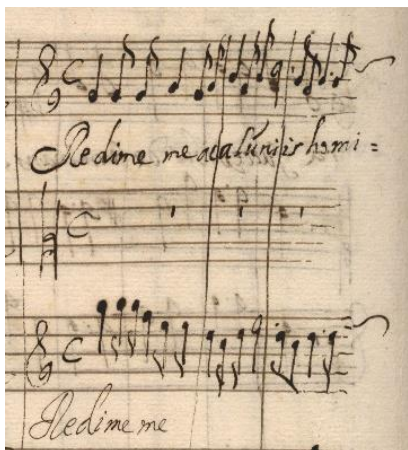 Redime me acalũniis homi=
Redime me